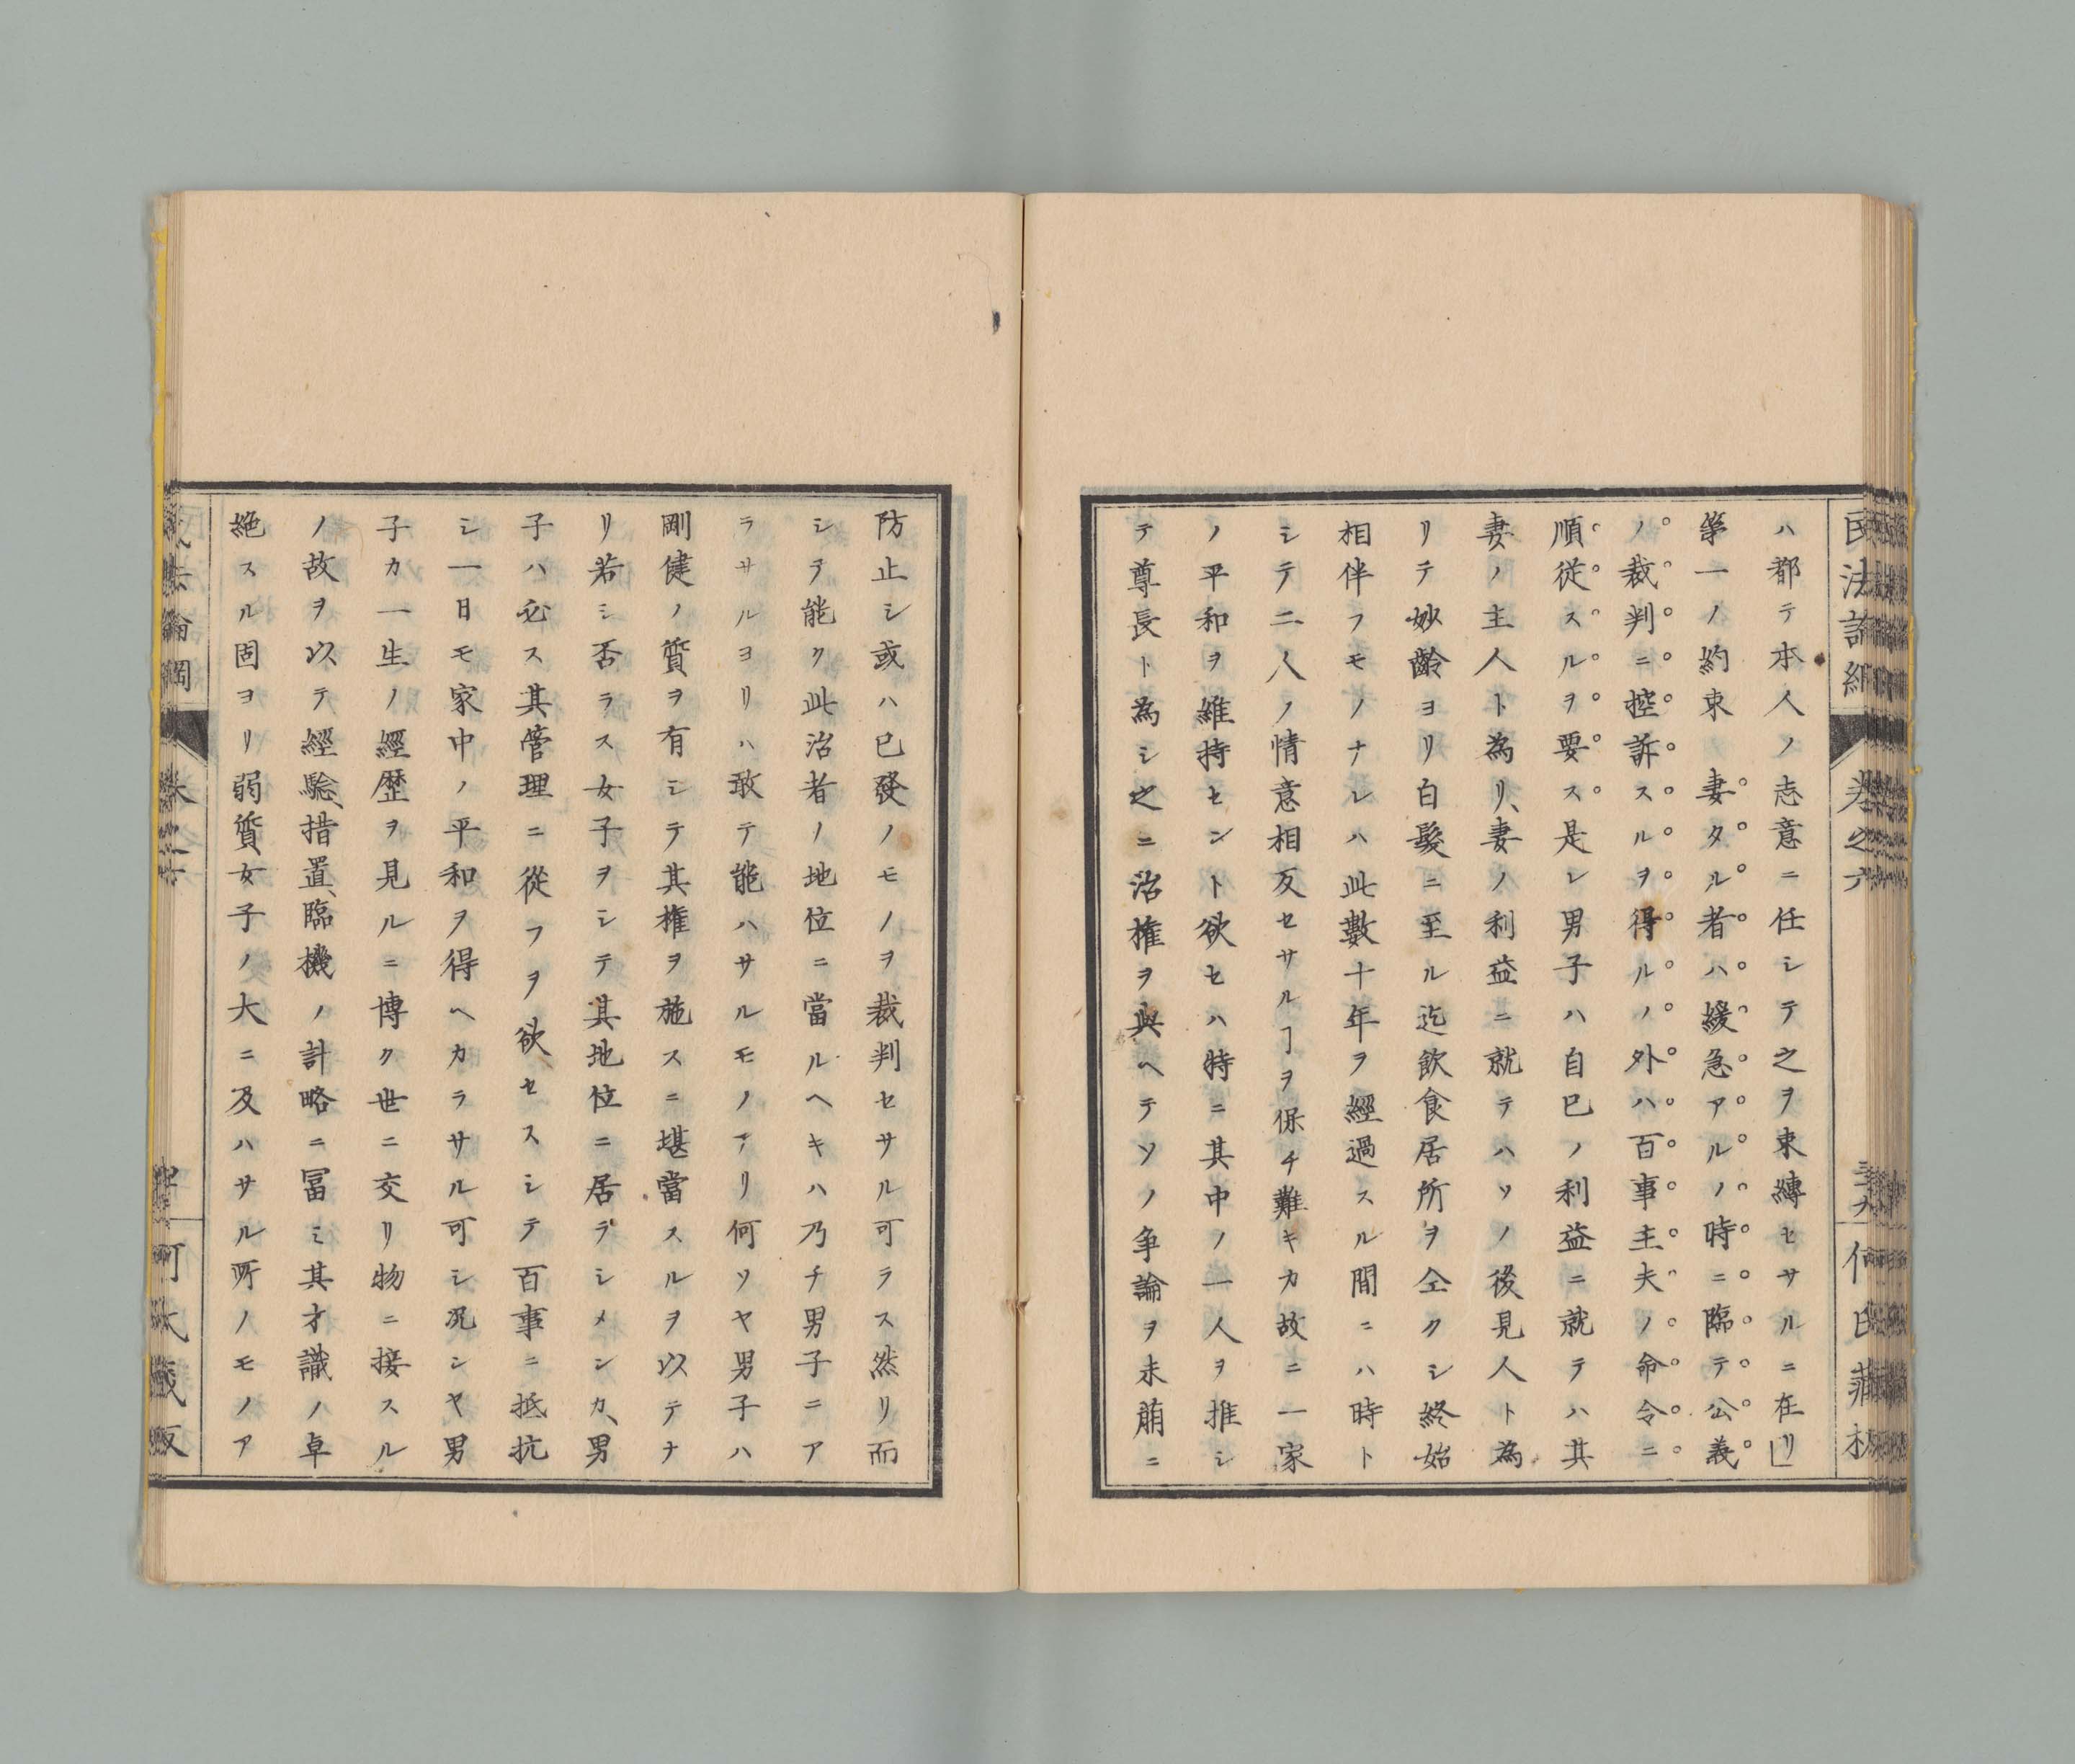 民法論綱
卷之六
三十九
何氏藏板
ハ都テ本人ノ志意ニ任シテ之ヲ束縛セサルニ在リ」
第一ノ約束ノ妻タル者ハ緩急アルノ時ニ臨テ公義
ノ裁判ニ控訴スルヲ得ルノ外ハ百事主夫ノ命令ニ
順從スルヲ要ス是レ男子ハ自已ノ利益ニ就テハ其
妻ノ主人ト為リ、妻ノ利益ニ就テハソノ後見人ト為
リテ妙齡ヨリ白髮ニ至ル迄飲食居所ヲ仝クシ終始
相伴フモノナレハ此數十年ヲ經過スル間ニハ時ト
シテ二人ノ情意相反セサルヿヲ保チ難キカ故ニ一家
ノ平和ヲ維持セント欲セハ特ニ其中ノ一人ヲ推シ
テ尊長ト為シ之ニ治權ヲ與ヘテソノ爭論ヲ未萠ニ
防止シ或ハ已發ノモノヲ裁判セサル可ラス然リ而
シテ能ク此治者ノ地位ニ當ルヘキハ乃チ男子ニア
ラサルヨリハ敢テ能ハサルモノアリ何ソヤ男子ハ
剛健ノ質ヲ有シテ其權ヲ施スニ堪當スルヲ以テナ
リ若シ否ラス女子ヲシテ其地位ニ居ラシメンカ、男
子ハ必ス其管理ニ從フヲ欲セスシテ百事ニ抵抗
シ一日モ家中ノ平和ヲ得ヘカラサル可シ况ンヤ男
子カ一生ノ經歷ヲ見ルニ博ク世ニ交リ物ニ接スル
ノ故ヲ以テ經驗、措置、臨機ノ計略ニ冨ミ其才識ノ卓
絶スル固ヨリ弱質女子ノ大ニ及ハサル所ノモノア
民法論綱
何氏藏版